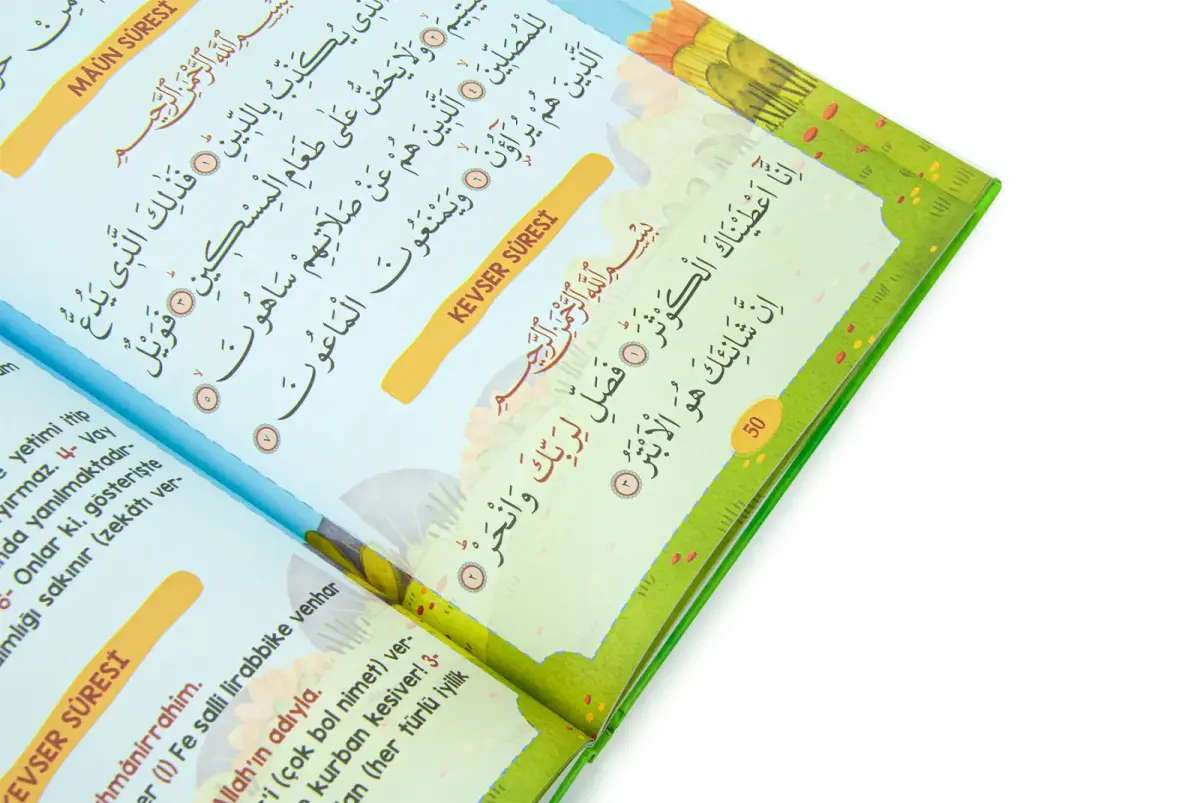 مِنْ
MÂÛN SÛRESİ
بِسْمِ اللّٰهِ الرَّحْمٰنِ الرَّحِيمِ
الَّذِى يُكَذِّبُ بِالدِّينِ ﴿١﴾ فَذٰلِكَ الَّذِى يَدُعُّ
﴿٢﴾ وَلَا يَحُضُّ عَلٰى طَعَامِ الْمِسْكِينِ ﴿٣﴾ فَوَيْلٌ
لِلْمُصَلِّينَ ﴿٤﴾ اَلَّذِينَ هُمْ عَنْ صَلَاتِهِمْ سَاهُونَ ﴿٥﴾
اَلَّذِينَ هُمْ يُرَٓاؤُنَ ﴿٦﴾ وَيَمْنَعُونَ الْمَاعُونَ ﴿٧﴾
KEVSER SÛRESİ
بِسْمِ اللّٰهِ الرَّحْمٰنِ الرَّحِيمِ
اِنَّٓا اَعْطَيْنَاكَ الْكَوْثَرَ ﴿١﴾ فَصَلِّ لِرَبِّكَ وَانْحَرْ ﴿٢﴾
اِنَّ شَانِئَكَ هُوَ الْاَبْتَرُ ﴿٣﴾
50
yetimi itip
4- Vay
yanılmaktadır-
6- Onlar ki, gösterişte
sakınır (zekâtı ver-
KEVSER SÛRESİ
(1) Fe salli lirabbike venhar
Allah'ın adıyla.
(çok bol nimet) ver-
kurban kesiver! 3-
(her türlü iyilik